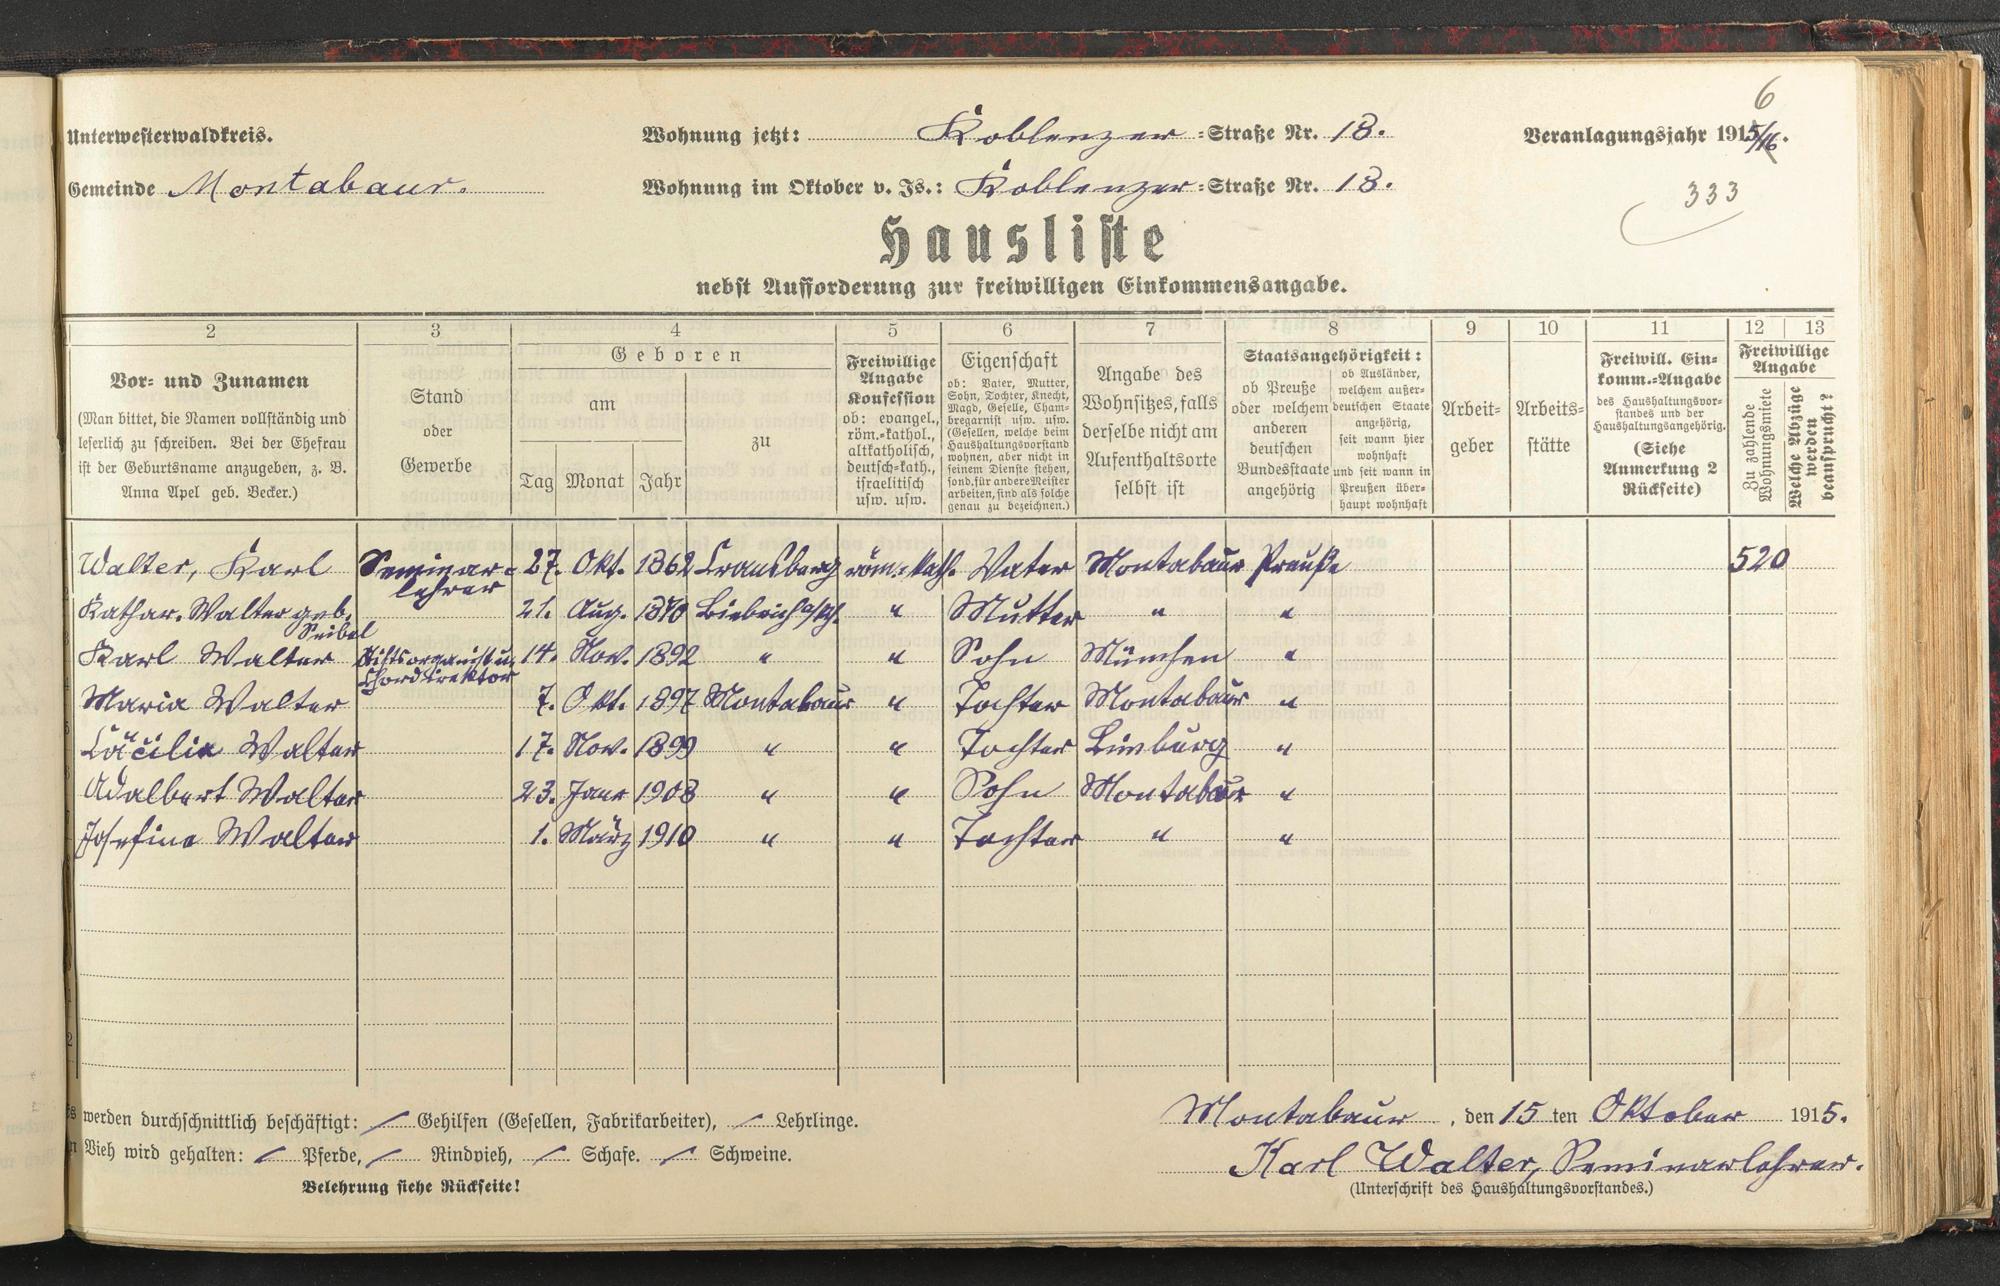 6
Unterwesterwaldkreis.
Wohnung jetzt: Koblenzer =Straße Nr. 18.
Veranlagungsjahr 1915/16.
Gemeinde Montabaur.
Wohnung im Oktober v. Js.: Koblenzer =Straße Nr. 18.
333
Hausliste
nebst Aufforderung zur freiwilligen Einkommensangabe.
2 3 4 5 6 7 8 9 10 11 12 13
Vor= und Zunamen
(Man bittet, die Namen vollständig und
leserlich zu schreiben. Bei der Ehefrau
ist der Geburtsname anzugeben, z. B.
Anna Apel geb. Becker.)
Stand
oder
Gewerbe
Geboren
am
Tag Monat Jahr
zu
Freiwillige
Angabe
Konfession
ob: evangel.,
röm.=kathol.,
altkatholisch,
deutsch=kath.,
israelitisch
usw. usw.
Eigenschaft
ob: Vater, Mutter,
Sohn, Tochter, Knecht,
Magd, Geselle, Cham=
bregarnist usw. usw.
(Gesellen, welche beim
Haushaltungsvorstand
wohnen, aber nicht in
seinem Dienste stehen,
sond. für andere Meister
arbeiten, sind als solche
genau zu bezeichnen.)
Angabe des
Wohnsitzes, falls
derselbe nicht am
Aufenthaltsorte
selbst ist
Staatsangehörigkeit:
ob Preuße
oder welchem
anderen
deutschen
Bundesstaate
angehörig
ob Ausländer,
welchem außer=
deutschen Staate
angehörig,
seit wann hier
wohnhaft
und seit wann in
Preußen über=
haupt wohnhaft
Arbeit=
geber
Arbeits=
stätte
Freiwill. Ein=
komm.=Angabe
des Haushaltungsvor=
standes und der
Haushaltungsangehörig.
(Siehe
Anmerkung 2
Rückseite)
Freiwillige
Angabe
Zu zahlende
Wohnungsmiete
Welche Abzüge
werden
beansprucht?
Walter, Karl Seminar=lehrer 27. Okt. 1862 Cransberg röm.=kath. Vater Montabaur Preuße 520
Kathar. Walter geb. Seibel 21. Aug. 1870 Biebrich a/Rh. " Mutter " "
Karl Walter Stiftsorganist u. Chordirektor 14. Nov. 1892 " " Sohn München "
Maria Walter 7. Okt. 1897 Montabaur " Tochter Montabaur "
Cäcilia Walter 17. Nov. 1899 " " Tochter Limburg "
Adalbert Walter 23. Janr 1908 " " Sohn Montabaur "
Josefine Walter 1. März 1910 " " Tochter " "
werden durchschnittlich beschäftigt: / Gehilfen (Gesellen, Fabrikarbeiter), / Lehrlinge.
Montabaur, den 15 ten Oktober 1915.
Vieh wird gehalten: / Pferde, / Rindvieh, / Schafe. / Schweine.
Karl Walter, Seminarlehrer.
Belehrung siehe Rückseite!
(Unterschrift des Haushaltungsvorstandes.)